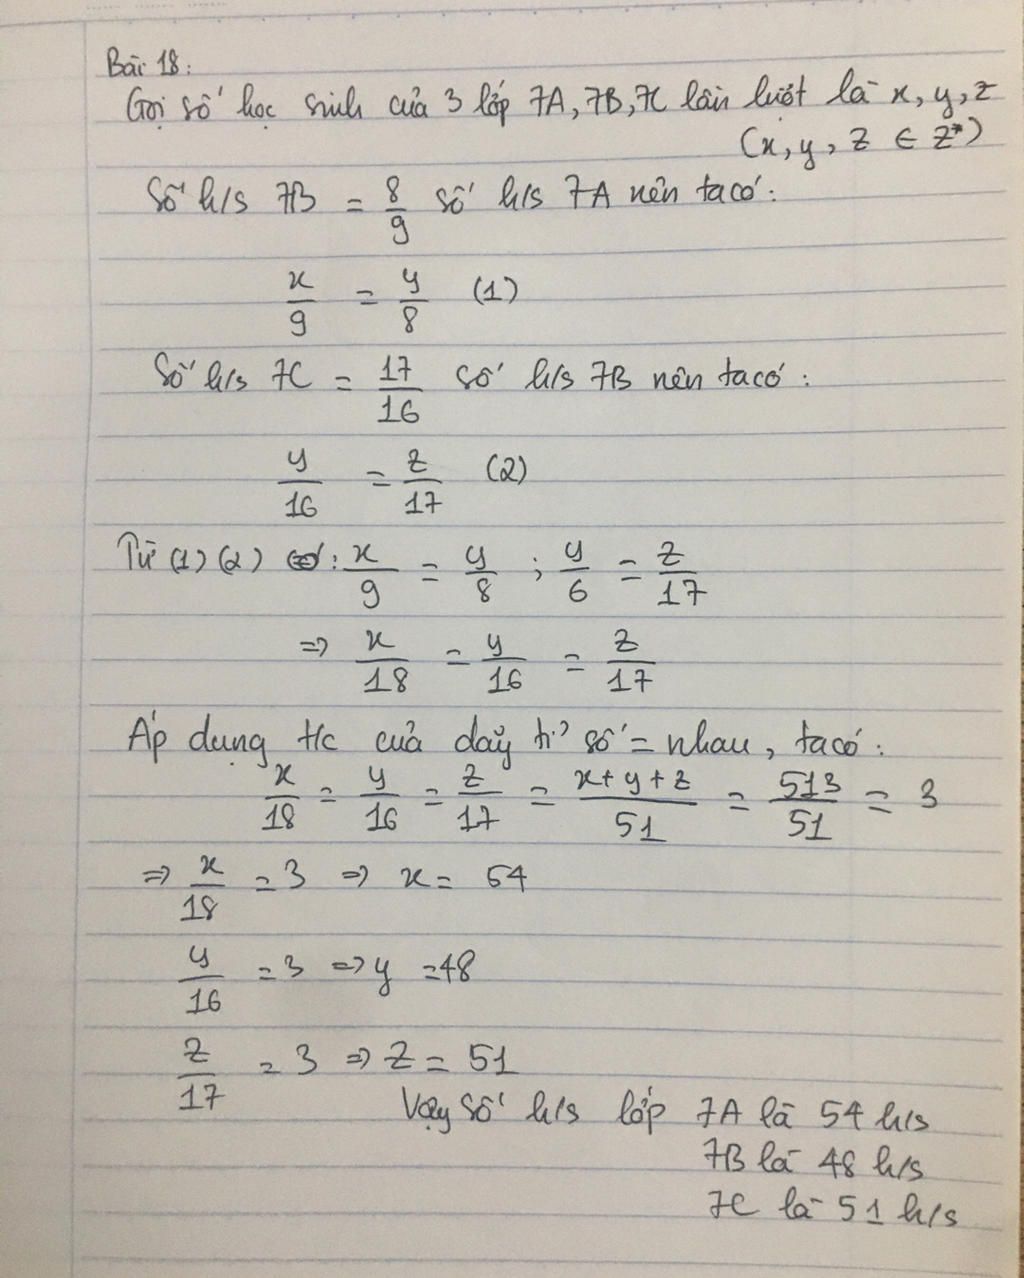 Bài 18:
Gọi số học sinh của 3 lớp 7A, 7B, 7C lần lượt là x, y, z
(x, y, z ∈ Z*)
Số h/s 7B = 8/9 số h/s 7A nên ta có:
x/9 = y/8 (1)
Số h/s 7C = 17/16 số h/s 7B nên ta có:
y/16 = z/17 (2)
Từ (1) (2) có: x/9 = y/8 ; y/6 = z/17
=> x/18 = y/16 = z/17
Áp dụng t/c của dãy tỉ số = nhau, ta có:
x/18 = y/16 = z/17 = x+y+z/51 = 513/51 = 3
=> x/18 = 3 => x = 54
y/16 = 3 => y = 48
z/17 = 3 => z = 51
Vậy số h/s lớp 7A là 54 h/s
7B là 48 h/s
7C là 51 h/s